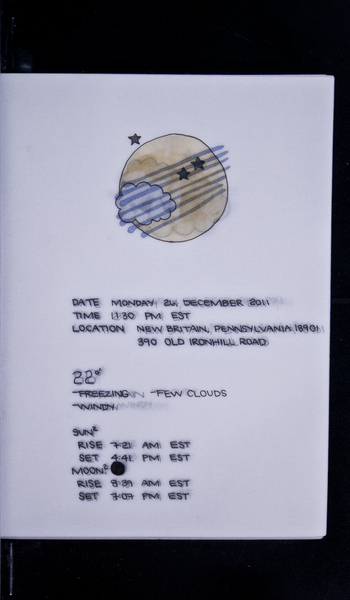 DATE MONDAY, 26, DECEMBER 2011
TIME 11:30 PM EST
LOCATION NEW BRITAIN, PENNSYLVANIA 18901
390 OLD IRONHILL ROAD
22°
-FREEZING -FEW CLOUDS
-WINDY
SUN²
RISE 7:21 AM EST
SET 4:41 PM EST
MOON²
RISE 8:39 AM EST
SET 7:07 PM EST